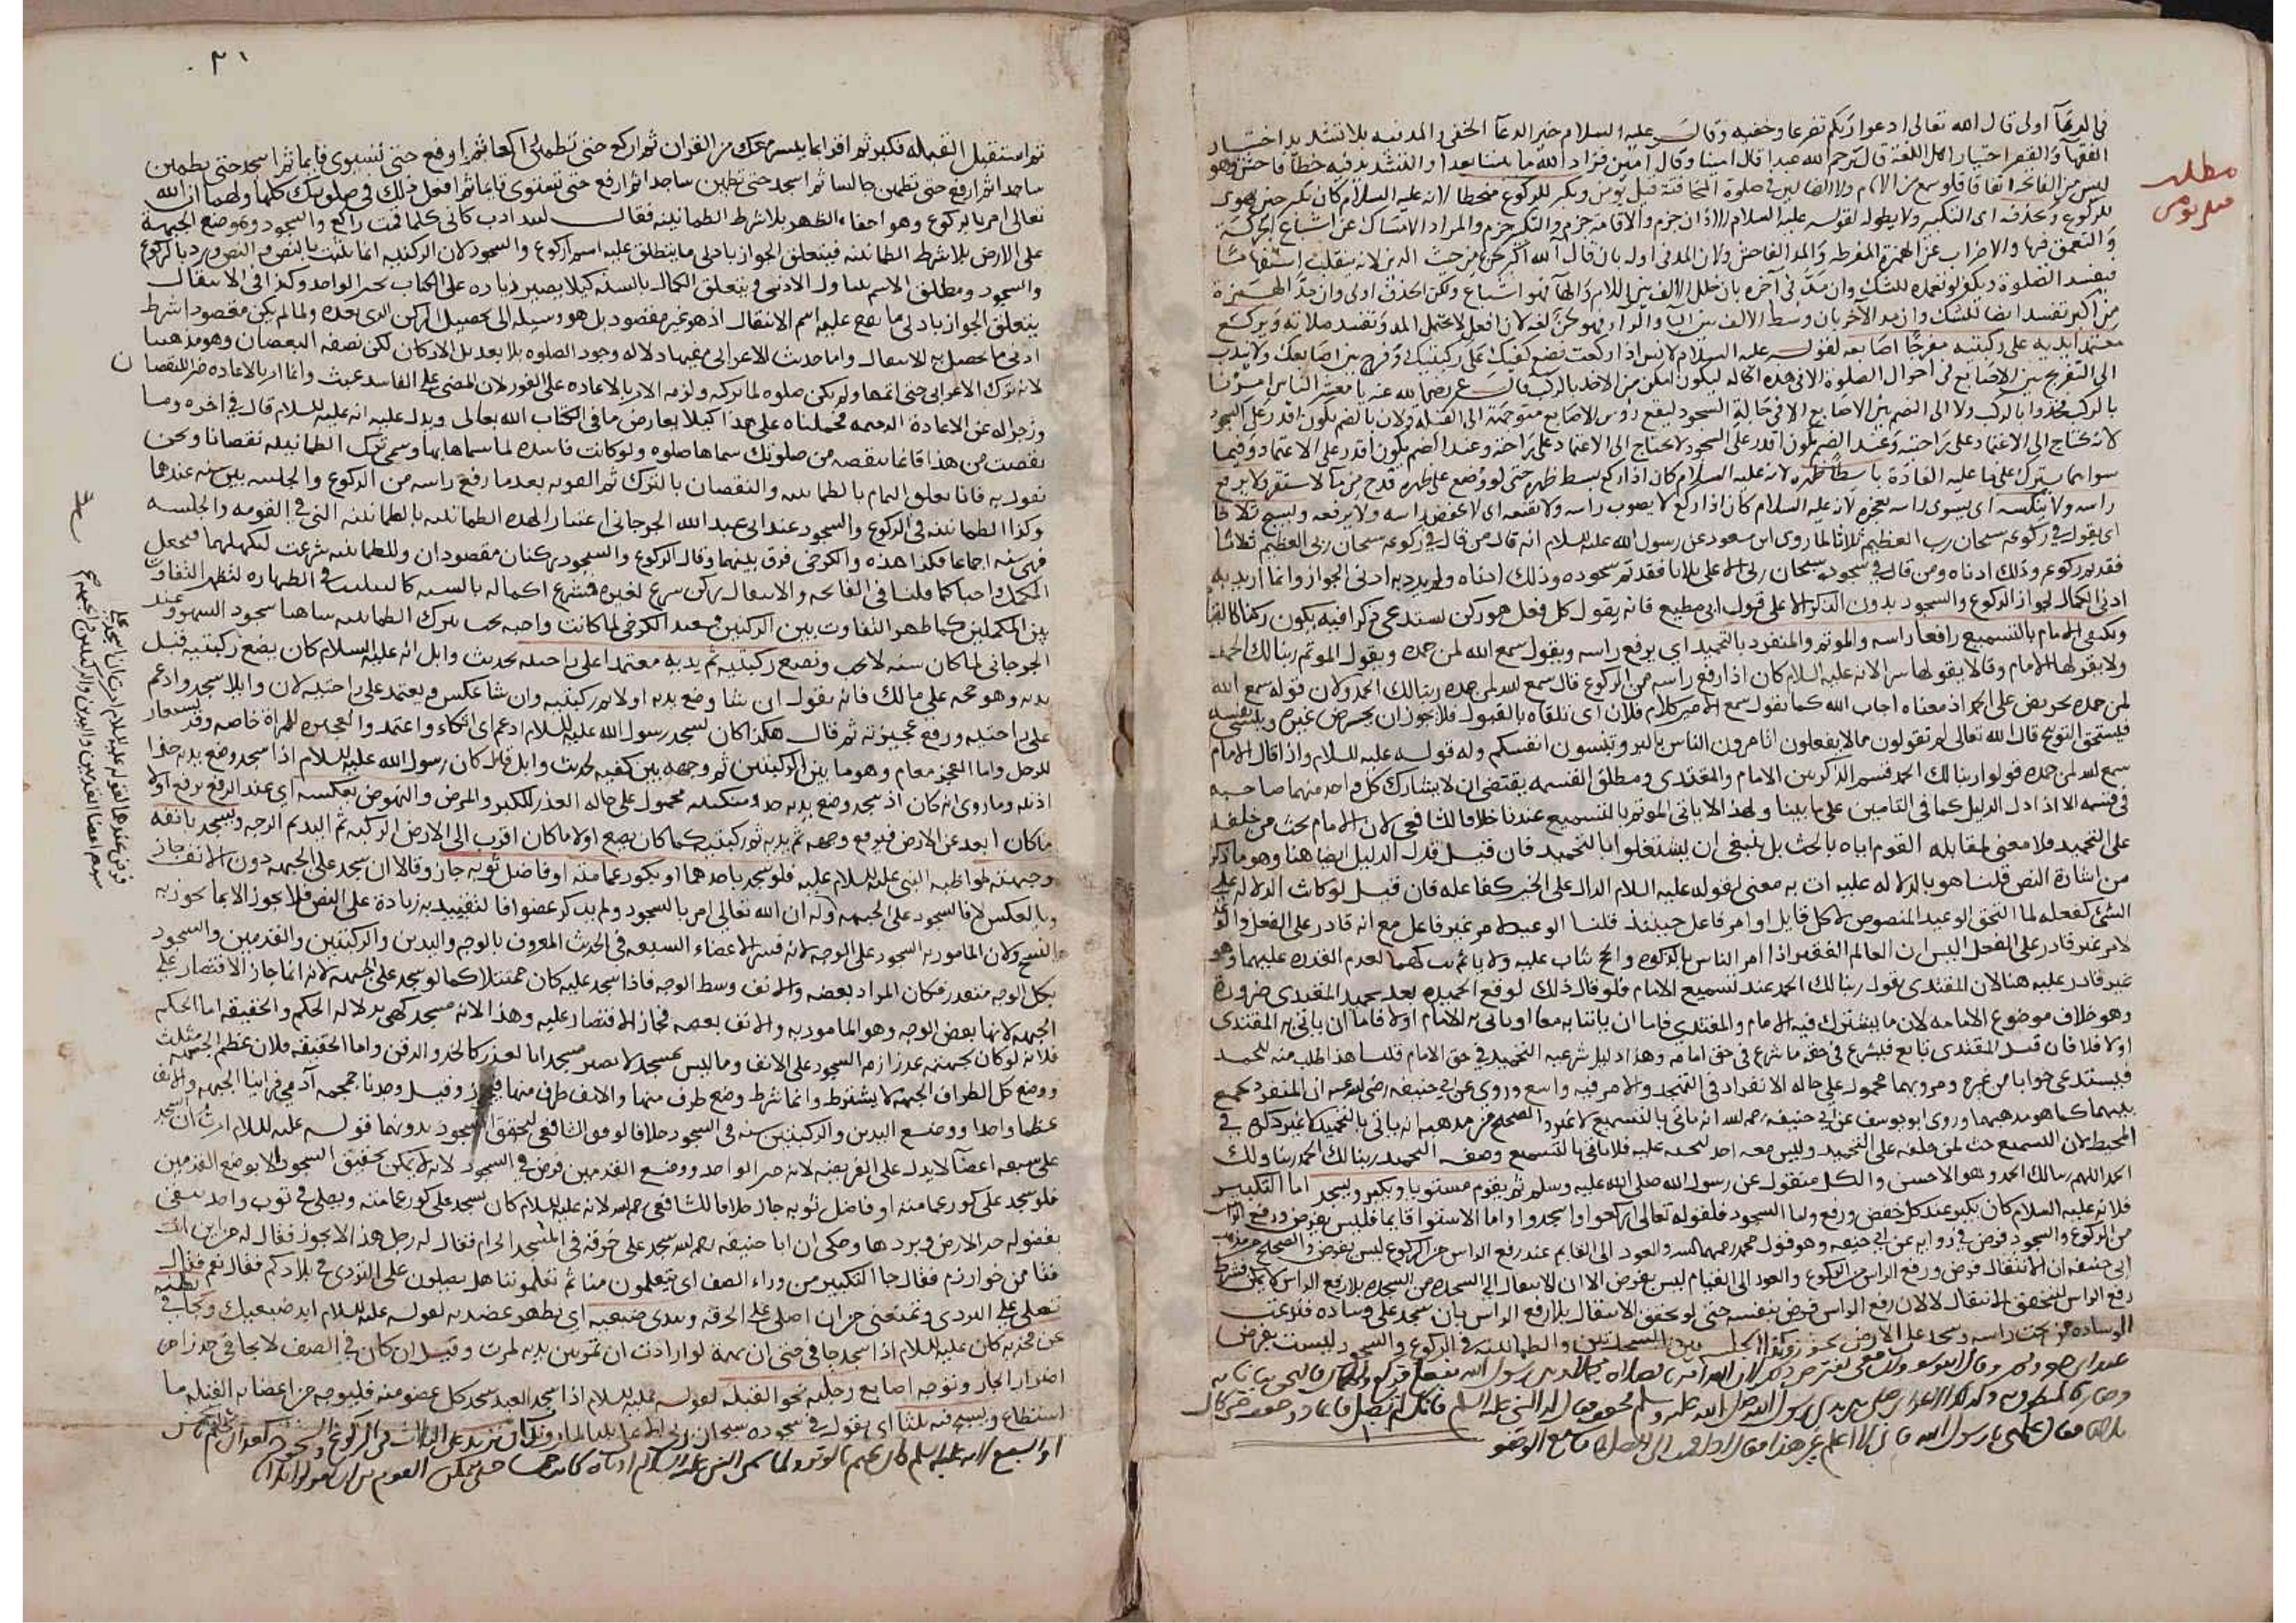 في الدعآ اولى قال الله تعالى ادعوا ربكم تضرعا وخفيه وقال عليه السلام خير الدعآ الخفي والمد فيه بلا تشديد اختيار
الفقهآ والقصر اختيار اهل اللغة قال يرحم الله عبدا قال امينا وقال امين فزاد الله ما بيننا بعدا والتشديد فيه خطآ فاحش وهو
مطلب
هل يؤمن
ليس من الفاتحة اتفاقا فلو سمع من الامام ولا الضالين في صلوة المخافتة قيل يؤمن ويكبر للركوع منحطا لانه عليه السلام كان يكبر حين يهوى
للركوع ويحذف اى التكبير ولا يطوله لقوله عليه السلام الاذان جزم والاقامة جزم والتكبير جزم والمراد الامتساك عن اشباع الحركة
والتعمق فيها والاضراب عن الهمزة المفرطه والمد الفاحش ولان المد في اوله بان قال آلله اكبر من حيث الدين لانه ينقلب استفهاما
فيفسد الصلوة ويكفر لو تعمده للشك وان مد في آخره بان خلل الالف بين اللام والهآ فهو اشباع ولكن الحذف اولى وان مد الهمزة
من اكبر تفسد ايضا للشك وان مد الآخر بان وسط الالف بين البا والرآ فهو لحن لغة لان افعل لا يحتمل المد وتفسد صلاته ويركع
معتمدا بيديه على ركبتيه مفرجا اصابعه لقوله عليه السلام لانس اذا ركعت فضع كفيك على ركبتيك وفرج بين اصابعك ولا يندب
الى التفريج بين الاصابع في احوال الصلوة الا في هذه الحاله ليكون امكن من الاخذ بالركب قال عمر رضي الله عنه يا معشر الناس امرنا
بالركب فخذوا بالركب ولا الى الضم بين الاصابع الا في حالة السجود ليقع رؤس الاصابع متوجهة الى القبلة ولان بالضم يكون اقدر على السجود
لانه يحتاج الى الاعتماد على راحته وعند الضم يكون اقدر على الاعتماد وفيما
سواهما يترك على ما عليه العادة باسطا ظهره لانه عليه السلام كان اذا ركع بسط ظهره حتى لو وضع على ظهره قدح من مآ لاستقر ولا يرفع
راسه ولا ينكسه اى يسوى راسه بعجزه لانه عليه السلام كان اذا ركع لا يصوب راسه ولا يقنعه اى لا يخفض راسه ولا يرفعه ويسبح ثلاثا
اى يقول في ركوعه سبحان رب العظيم ثلاثا لما روى ابن مسعود عن رسول الله عليه السلام انه قال من قال في ركوعه سبحان ربي العظيم ثلاثا
فقد تم ركوعه وذلك ادناه ومن قال في سجوده سبحان ربي الاعلى ثلاثا فقد تم سجوده وذلك ادناه ولم يرد به ادنى الجواز وانما اراد به
ادنى الكمال لجواز الركوع والسجود بدون الذكر الا على قول ابي مطيع فانه يقول كل فعل هو ركن يستدعي ذكرا فيه يكون ركنا كالقيام
ويكتفي الامام بالتسميع رافعا راسه والمؤتم والمنفرد بالتحميد اي يرفع راسه ويقول سمع الله لمن حمده ويقول المؤتم ربنا لك الحمد
ولا يقولها الامام وقالا يقولها سرا لانه عليه السلام كان اذا رفع راسه من الركوع قال سمع الله لمن حمده ربنا لك الحمد ولان قوله سمع الله
لمن حمده تحريض على الحمد اذ معناه اجاب الله كما يقول سمع الامير كلام فلان اى تلقاه بالقبول فلا يجوز ان يحرض غيره وينسى نفسه
فيستحق التوبيخ قال الله تعالى لم تقولون مالا تفعلون اتامرون الناس بالبر وتنسون انفسكم وله قوله عليه السلام واذا قال الامام
سمع الله لمن حمده قولوا ربنا لك الحمد قسم الذكر بين الامام والمقتدى ومطلق القسمه يقتضي ان لا يشارك كل واحد منهما صاحبه
في قسمه الا اذا دل الدليل كما في التامين على ما بينا ولهذا لا ياتى المؤتم بالتسميع عندنا خلافا للشافعي لان الامام يحث من خلفه
على التحميد فلا معنى لمقابله القوم اياه بالحث بل ينبغي ان يشتغلوا بالتحميد فان قيل قد دل الدليل ايضا هنا وهو ما ذكر
من اشارة النص قلنا هو بالدلاله عليه ات به معنى لقوله عليه السلام الدال على الخير كفاعله فان قيل لو كانت الدلاله على
الشئ كفعله لما التحق الوعيد المنصوص لكل قايل او امر فاعل حينئذ قلنا الوعيد لامر غير فاعل مع انه قادر على الفعل والوعيد
لامر غير قادر على الفعل اليس ان العالم الفقير اذا امر الناس بالزكوه والحج يثاب عليه ولا ياثم بتركهما لعدم القدره عليهما وهو
غير قادر عليه هنا لان المقتدى يقول ربنا لك الحمد عند تسميع الامام فلو قال ذلك لوقع تحميده بعد تحميد المقتدى ضرورة
وهو خلاف موضوع الامامه لان ما يشترك فيه الامام والمقتدى فاما ان ياتيا به معا او ياتى به الامام اولا فاما ان ياتى به المقتدى
اولا فلا فان قيل المقتدى تابع فليشرع في حقه ما شرع في حق امامه وهذا دليل شرعيه التحميد في حق الامام قلنا هذا طلب منه للحمد
فيستدعى جوابا من غيره ومرويهما محمول على حاله الانفراد في التهجد والامر فيه واسع وروى عن ابي حنيفه رضي الله عنه ان المنفرد يجمع
بينهما كما هو مذهبهما وروى ابو يوسف عن ابي حنيفه رحمه الله انه ياتى بالتسميع لا غير والصحيح من مذهبه انه ياتى بالتحميد لا غير ذكره في
المحيط لان التسميع حث لمن خلفه على التحميد وليس معه احد ليحثه عليه فلا ياتى بالتسميع وصفه التحميد ربنا لك الحمد ربنا ولك
الحمد اللهم ربنا لك الحمد وهو الاحسن والكل منقول عن رسول الله صلى الله عليه وسلم ثم يقوم مستويا ويكبر ويسجد اما التكبير
فلانه عليه السلام كان يكبر عند كل خفض ورفع واما السجود فلقوله تعالى اركعوا واسجدوا واما الاستوا قايما فليس بفرض ورفع الراس
من الركوع والسجود فرض في روايه عن ابي حنيفه وهو قول محمد والعود الى القيام عند رفع الراس من الركوع ليس بفرض والصحيح من مذهب
ابي حنيفه ان الانتقال فرض ورفع الراس من الركوع والعود الى القيام ليس بفرض الا ان الانتقال الى السجده من السجده بلا رفع الراس لا يمكن فشرط
رفع الراس لتحقق الانتقال لا لان رفع الراس فرض بنفسه حتى لو تحقق الانتقال بلا رفع الراس بان سجد على وساده فنزعت
الوساده من تحت راسه وسجد على الارض يجوز وكذا الجلسه بين السجدتين والطمانينه في الركوع والسجود ليست بفرض
٣١
ثم استقبل القبله فكبر ثم اقرا ما تيسر معك من القران ثم اركع حتى تطمئن راكعا ثم ارفع حتى تستوى قايما ثم اسجد حتى تطمئن
ساجدا ثم ارفع حتى تطمئن جالسا ثم اسجد حتى تطمئن ساجدا ثم ارفع حتى تستوى قايما ثم افعل ذلك في صلوتك كلها ولهما ان الله
تعالى امر بالركوع وهو احناء الظهر بلا شرط الطمانينه فقال كلما قمت راكع والسجود وهو وضع الجبهة
على الارض بلا شرط الطمانينه فيتعلق الجواز بادنى ما ينطلق عليه اسم الركوع والسجود لان الركنيه انما تثبت بالنص والنص ورد بالركوع
والسجود ومطلق الاسم يتناول الادنى ويتعلق الكمال بالسنه كيلا يصير زياده على الكتاب بخبر الواحد وكذا في الانتقال
يتعلق الجواز بادنى ما يقع عليه اسم الانتقال اذ هو غير مقصود بل هو وسيله الى تحصيل الركن الذى بعده ولما لم يكن مقصودا شرط
ادنى ما يحصل به الانتقال واما حديث الاعرابى ففيها دلاله وجود الصلوه بلا تعديل الاركان لكن بصفه النقصان وهو مذهبنا
لانه ترك الاعرابى حتى اتمها ولو لم يكن صلوه لما تركه ولزمه الامر بالاعاده على الفور لان المضي على الفاسد عبث وانما امر بالاعاده جبرا للنقصان
وزجرا له عن الاعادة فحملناه على هذا كيلا يعارض ما في الكتاب الله تعالى ويدل عليه انه عليه السلام قال في اخره وما
نقصت من هذا فانما تنقصه من صلوتك سماها صلوه ولو كانت فاسده لما سماها بها وسمى ترك الطمانينه نقصانا ونحن
نقول به فانا نعلق التمام بالطمانينه والنقصان بالترك ثم القومه بعدما رفع راسه من الركوع والجلسه بين سنه عندهما
وكذا الطمانينه في الركوع والسجود عند ابى عبد الله الجرجانى اعتبارا لهذه الطمانينه بالطمانينه التى في القومه والجلسه
فهى سنه اجماعا فكذا هذه والكرخى فرق بينهما وقال الركوع والسجود ركنان مقصودان والطمانينه شرعت لتكميلهما فيجعل
المكمل واجبا كما قلنا في الفاتحه والانتقال ركن شرع لغيره فشرع اكماله بالسنه كالتثليث في الطهاره لتظهر التفاوت
بين المكملين كما ظهر التفاوت بين الركنين فعند الكرخى لما كانت واجبه يجب بترك الطمانينه ساهيا سجود السهو وعند
الجرجانى لما كان سنه لا يجب ويضع ركبتيه ثم يديه معتمدا على راحتيه لحديث وايل انه عليه السلام كان يضع ركبتيه قبل
يديه وهو حجه على مالك فانه يقول ان شا وضع يديه اولا ثم ركبتيه وان شا عكس ويعتمد على راحتيه لان وايلا سجد وادعم
على راحتيه ورفع عجيزته ثم قال هكذا كان يسجد رسول الله عليه السلام ادعم اى اتكاء واعتمد والعجيزه للمراة خاصه وقد يستعار
للرجل واما العجز فعام وهو ما بين الوركين ثم وجهه بين كفيه لحديث وايل قال كان رسول الله عليه السلام اذا سجد وضع يديه حذا
اذنيه وما روى انه كان اذا سجد وضع يديه حذو منكبيه محمول على حاله العذر للكبر والمرض والنهوض بعكسه اى عند الرفع يرفع اولا
ما كان ابعد عن الارض فيرفع وجهه ثم يديه ثم ركبتيه كما كان يضع اولا ما كان اقرب الى الارض الركبه ثم اليد ثم الوجه ويسجد بانفه
وجبهته لمواظبه النبى عليه السلام عليه فلو سجد باحدهما او بكور عمامته او فاضل ثوبه جاز وقالا ان سجد على الجبهه دون الانف جاز
وبالعكس لا فالسجود على الجبهه وله ان الله تعالى امر بالسجود ولم يذكر عضوا فالتقييد به زيادة على النص فلا يجوز الا بما يجوز به
النسخ ولان المامور به السجود على الوجه لانه فسر الاعضاء السبعه في الحديث المعروف بالوجه واليدين والركبتين والقدمين والسجود
بكل الوجه متعذر فكان المراد بعضه والانف وسط الوجه فاذا سجد عليه كان ممتثلا كما لو سجد على الجبهه لانه انما جاز الاقتصار على
الجبهه لانها بعض الوجه وهو المامور به والانف بعضه فجاز الاقتصار عليه وهذا لانه مسجد كهى بدلاله الحكم والحقيقه اما الحكم
فلانه لو كان بجبهته عذر لزمه السجود على الانف وما ليس بمسجد لا يصير مسجدا بالعذر كالخد والذقن واما الحقيقه فلان عظم الجبهه مثلث
ووضع كل اطراف الجبهه لا يشترط وانما شرط وضع طرف منها والانف طرف منها فيجوز وقيل وجدنا جمجمة آدمي فراينا الجبهه والانف
عظما واحدا ووضع اليدين والركبتين سنه في السجود خلافا لزفر والشافعي لتحقق السجود بدونهما قوله عليه السلام امرت ان اسجد
على سبعه اعضآ لا يدل على الفرضيه لانه خبر الواحد ووضع القدمين فرض في السجود لانه لا يمكن تحقيق السجود الا بوضع القدمين
فلو سجد على كور عمامته او فاضل ثوبه جاز خلافا للشافعي رحمه الله لانه عليه السلام كان يسجد على كور عمامته ويصلى في ثوب واحد يتقى
بفضوله حر الارض وبردها وحكى ان ابا حنيفه رحمه الله سجد على خرقه في المسجد الحرام فقال له رجل هذا لا يجوز فقال له من اين انت
فقال من خوارزم فقال جا التكبير من وراء الصف اى تتعلمون منا ثم تعلموننا هل تصلون على البردى في بلادكم فقال نعم فقال
تصلى على البردى وتمنعنى من ان اصلى على الخرقه ويبدى ضبعيه اى يظهر عضديه لقوله عليه السلام ابد ضبعيك ويجافى بطنه
عن فخذيه كان عليه السلام اذا سجد جافى حتى ان بهمة لو ارادت ان تمر بين يديه لمرت وقيل ان كان في الصف لا يجافى حذرا من
اضرار الجار وتوجه اصابع رجليه نحو القبله لقوله عليه السلام اذا سجد العبد سجد كل عضو منه فليوجه من اعضايه القبله ما
استطاع ويسبح فيه ثلثا اى يقول في سجوده سبحان ربى الاعلى ثلثا لما روينا